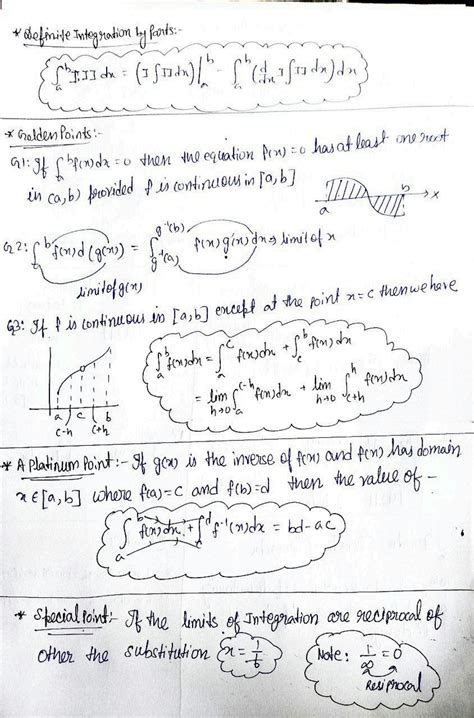 * Definite Integration by Parts:-
∫_a^b I.II dx = (I∫II dx)|_a^b - ∫_a^b (d/dx I ∫II dx) dx
* Golden Points:-
G1: If ∫_a^b f(x)dx = 0 then the equation f(x)=0 has at least one root
in (a,b) provided f is continuous in [a,b]
a b → x
G2: ∫_a^b f(x) d(g(x)) = ∫_{g⁻¹(a)}^{g⁻¹(b)} f(x) g'(x) dx ⇒ limit of x
limit of g(x)
G3: If f is continuous in [a,b] except at the point x=c then we have
∫_a^b f(x)dx = ∫_a^c f(x)dx + ∫_c^b f(x)dx
= lim_{h→0} ∫_a^{c-h} f(x)dx + lim_{h→0} ∫_{c+h}^h f(x)dx
a c b
c-h c+h
* A Platinum Point:- If g(x) is the inverse of f(x) and f(x) has domain
x∈[a,b] where f(a)=c and f(b)=d then the value of -
∫_a^b f(x)dx + ∫_c^d f⁻¹(x)dx = bd-ac
* Special Point:- If the limits of Integration are reciprocal of
other the substitution x = 1/t
Note: 1/∞ = 0
Reciprocal